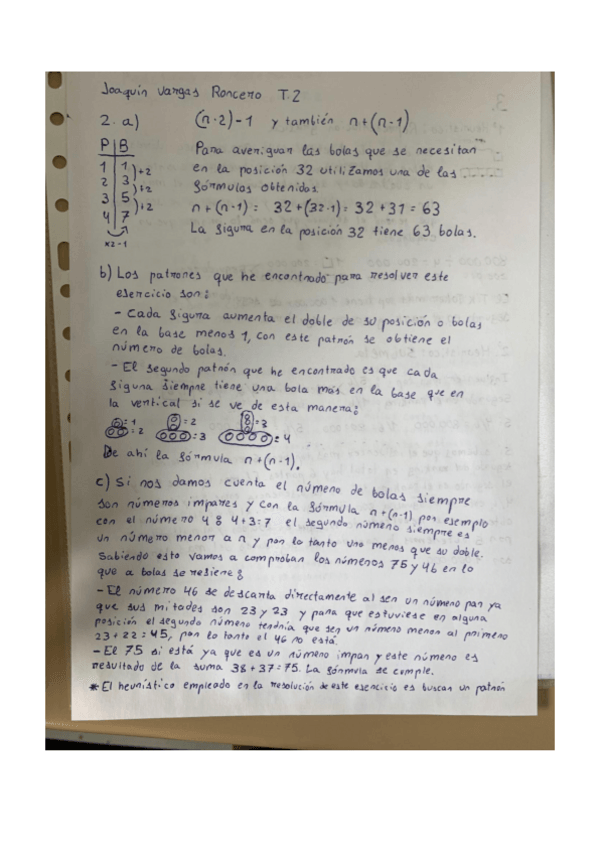 Joaquín Vargas Roncero T.2
2. a) (n·2)-1 y también n+(n-1)
P | B
1 | 1
2 | 3
3 | 5
4 | 7
+2
+2
+2
x2-1
Para averiguar las bolas que se necesitan
en la posición 32 utilizamos una de las
fórmulas obtenidas.
n+(n-1) = 32+(32-1) = 32+31 = 63
La figura en la posición 32 tiene 63 bolas.
b) Los patrones que he encontrado para resolver este
ejercicio son:
- Cada figura aumenta el doble de su posición o bolas
en la base menos 1, con este patrón se obtiene el
número de bolas.
- El segundo patrón que he encontrado es que cada
figura siempre tiene una bola más en la base que en
la vertical si se ve de esta manera:
=1 =2 =3
=2 =3 =4
De ahí la fórmula n+(n-1).
c) Si nos damos cuenta el número de bolas siempre
son números impares y con la fórmula n+(n-1) por ejemplo
con el número 4 8 4+3=7 el segundo número siempre es
un número menor a n y por lo tanto uno menos que su doble.
Sabiendo esto vamos a comprobar los números 75 y 46 en lo
que a bolas se refiere:
- El número 46 se descarta directamente al ser un número par ya
que sus mitades son 23 y 23 y para que estuviese en alguna
posición el segundo número tendría que ser un número menor al primero
23+22=45, por lo tanto el 46 no está.
- El 75 si está ya que es un número impar y este número es
resultado de la suma 38+37=75. La fórmula se cumple.
* El heurístico empleado en la resolución de este ejercicio es buscar un patrón